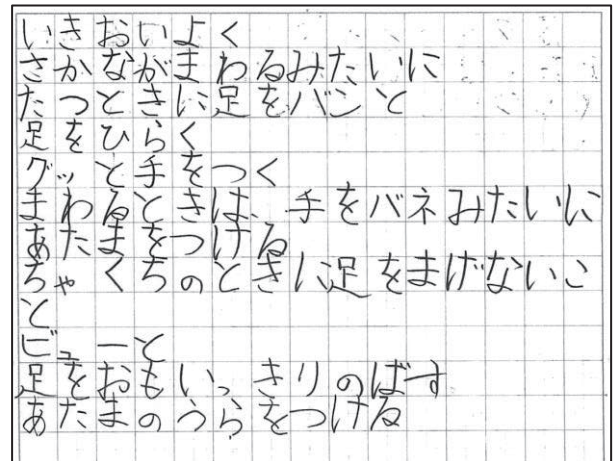 いきおいよく
さかながまわるみたいに
たつときに足をバンと
足をひらく
グッと手をつく
まわるときは、手をバネみたいに
あたまをつける
ちゃくちのときに足をまげないこ
と
ビューと
足をおもいっきりのばす
あたまのうらをつける